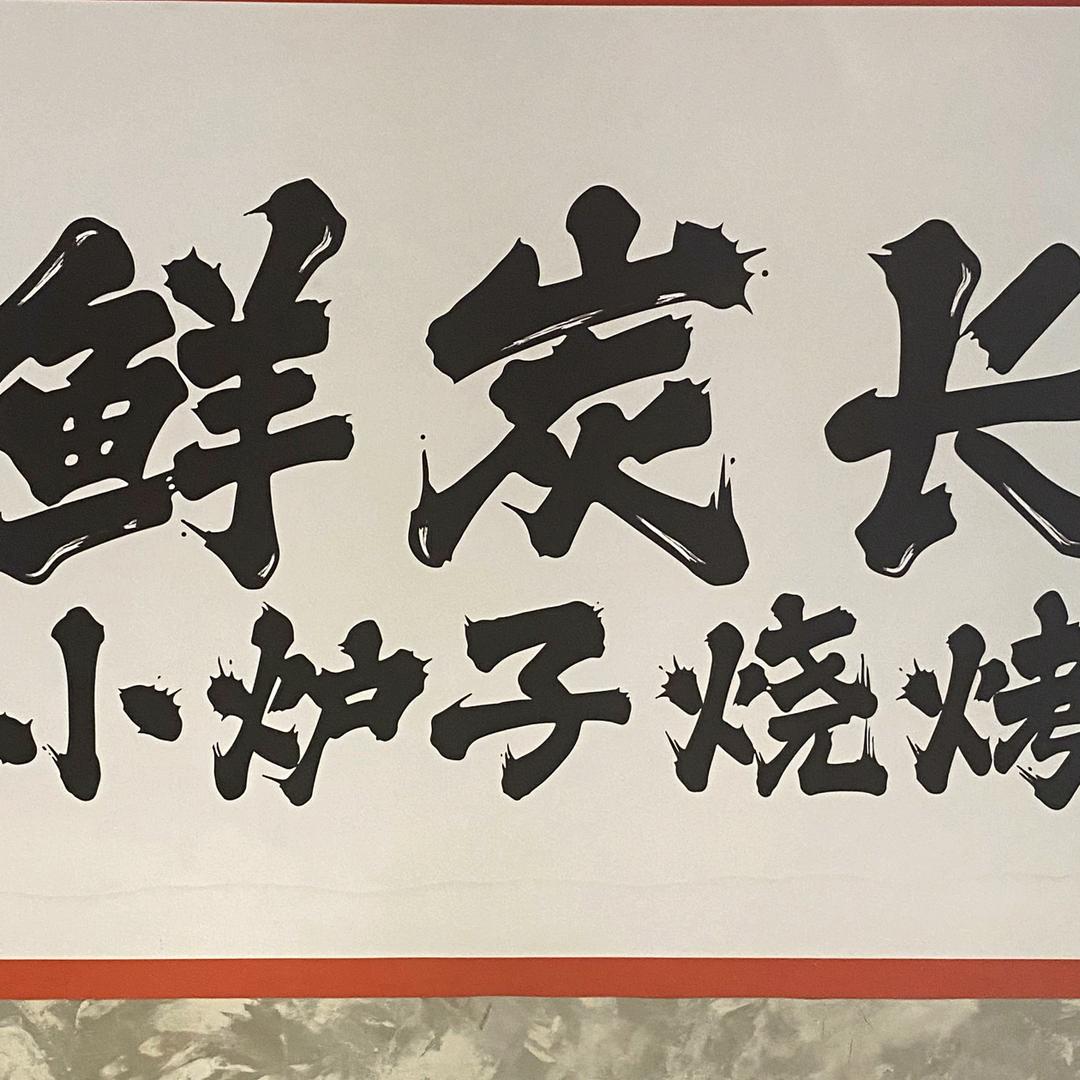 鲜炭长
小炉子烧烤